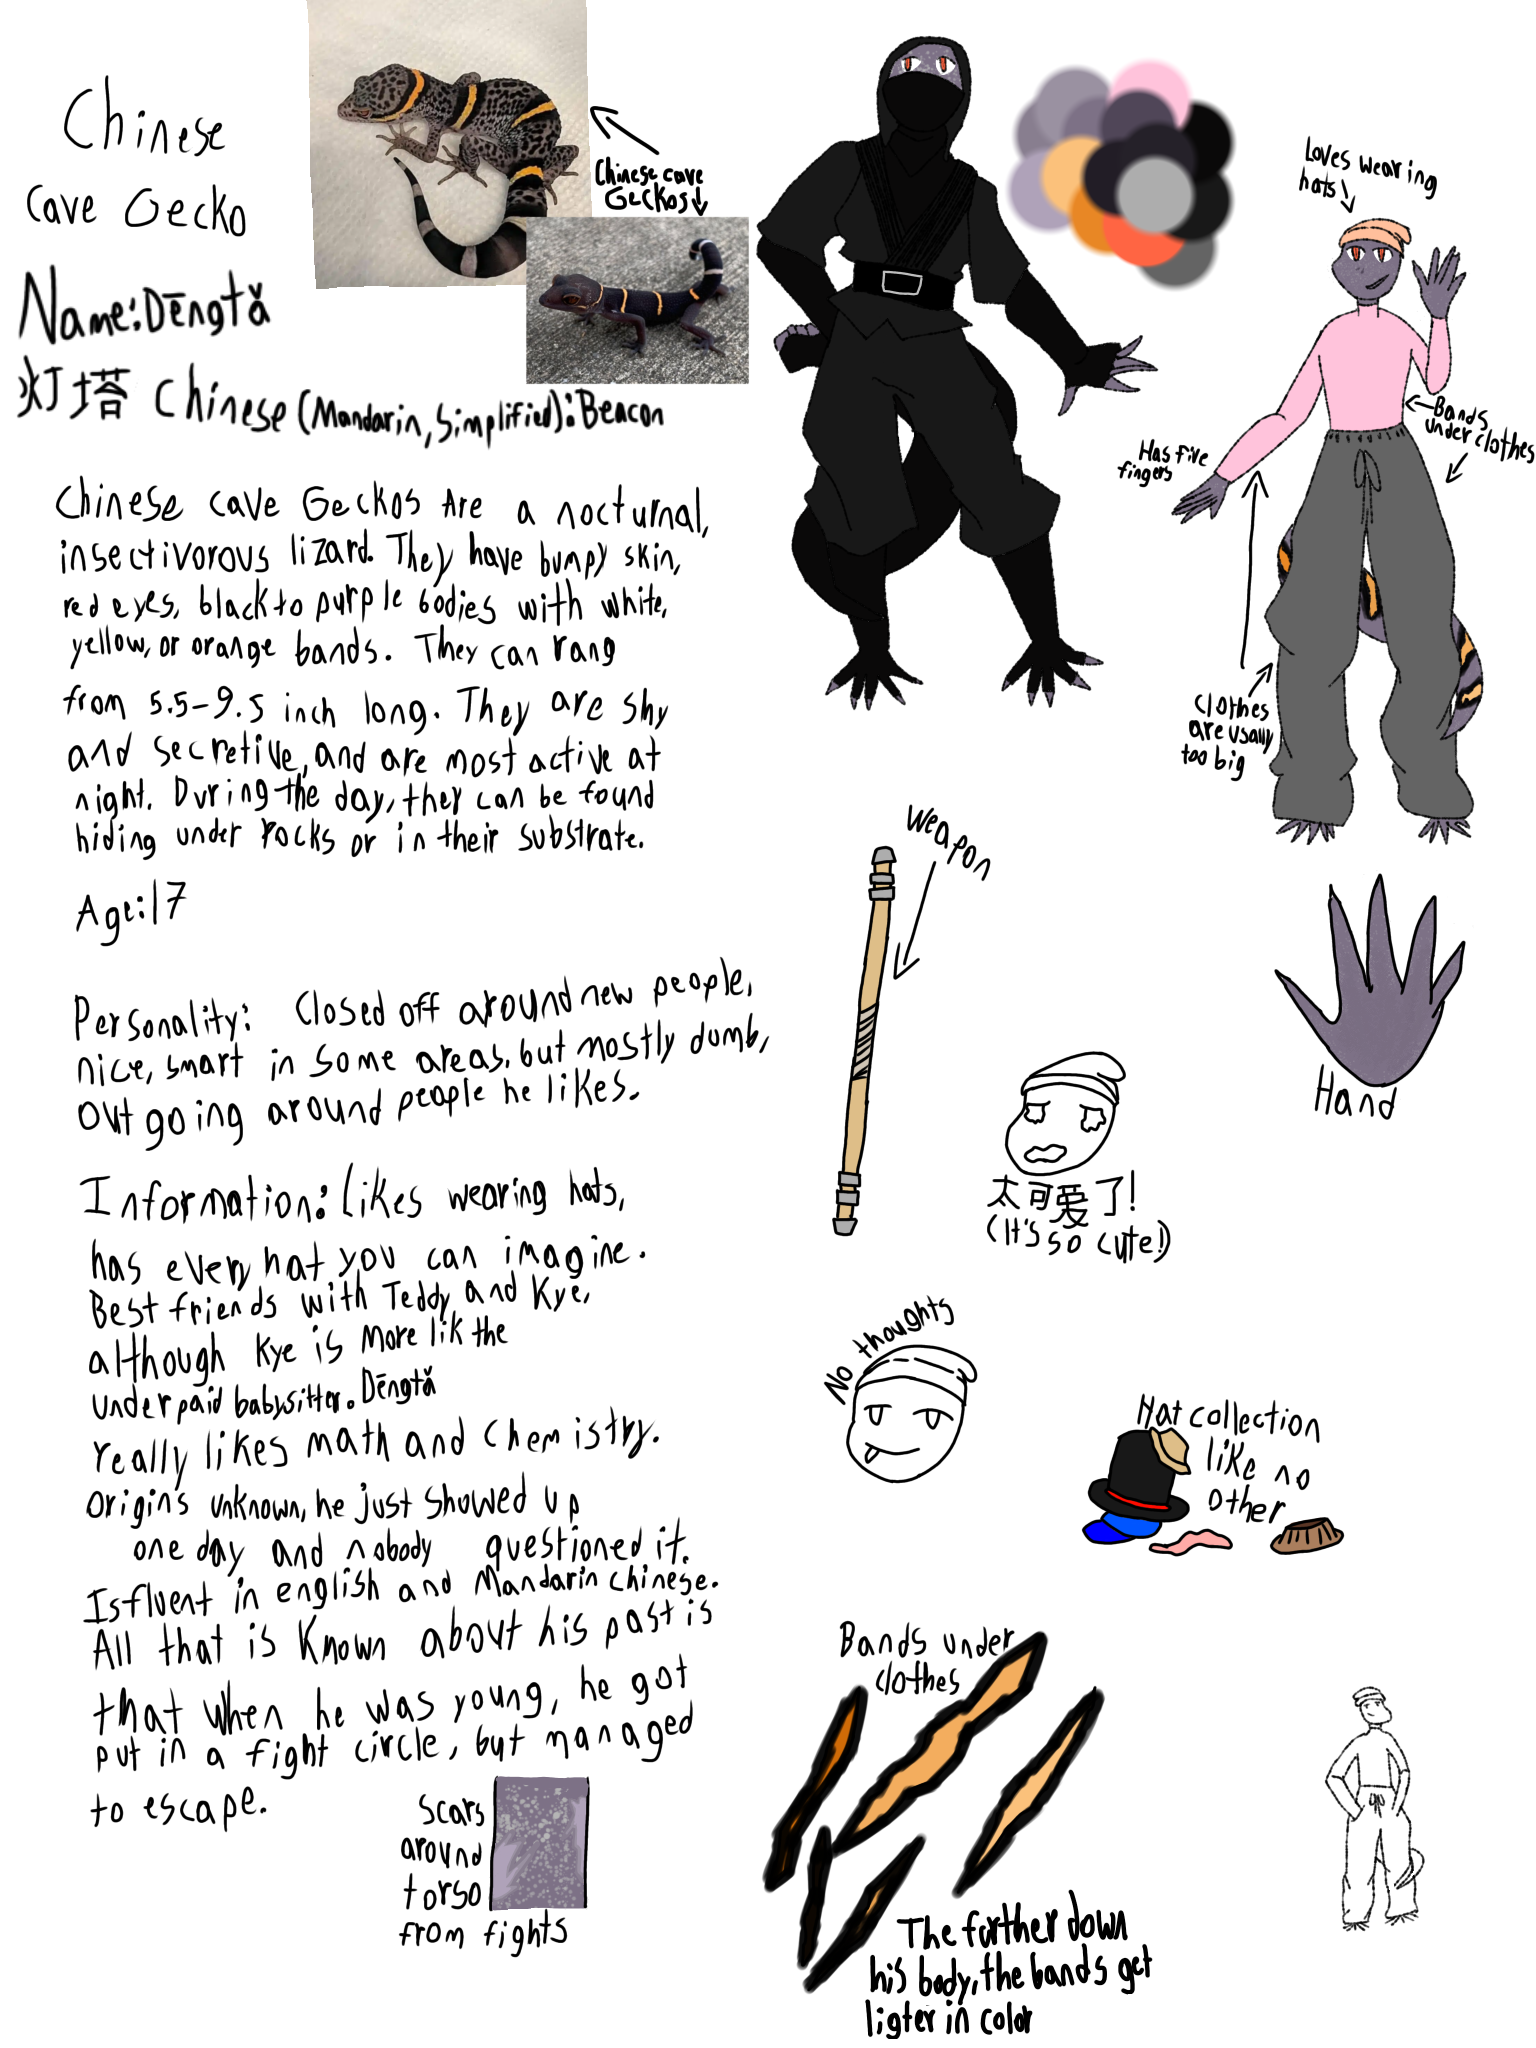 Chinese
cave Gecko
Name: Dēngtǎ
灯塔 Chinese (Mandarin, Simplified): Beacon
Chinese cave Geckos Are a nocturnal,
insectivorous lizard. They have bumpy skin,
red eyes, black to purple bodies with white,
yellow, or orange bands. They can rang
from 5.5-9.5 inch long. They are shy
and secretive, and are most active at
night. During the day, they can be found
hiding under rocks or in their substrate.
Age: 17
Personality: Closed off around new people,
nice, smart in some areas, but mostly dumb,
out going around people he likes.
Information: Likes wearing hats,
has every hat you can imagine.
Best friends with Teddy and Kye,
although Kye is More lik the
underpaid babysitter. Dēngtǎ
really likes math and chemistry.
Origin's unknown, he just showed up
one day and nobody questioned it.
Is fluent in english and Mandarin chinese.
All that is Known about his past is
that when he was young, he got
put in a fight circle, but managed
to escape.
Scars
around
torso
from fights
Chinese cave
Geckos
Loves wearing
hats
Bands
under clothes
Has five
fingers
Clothes
are usally
too big
Weapon
Hand
太可爱了!
(It's so cute!)
No thoughts
Hat collection
like no
other
Bands under
clothes
The further down
his body, the bands get
ligter in color